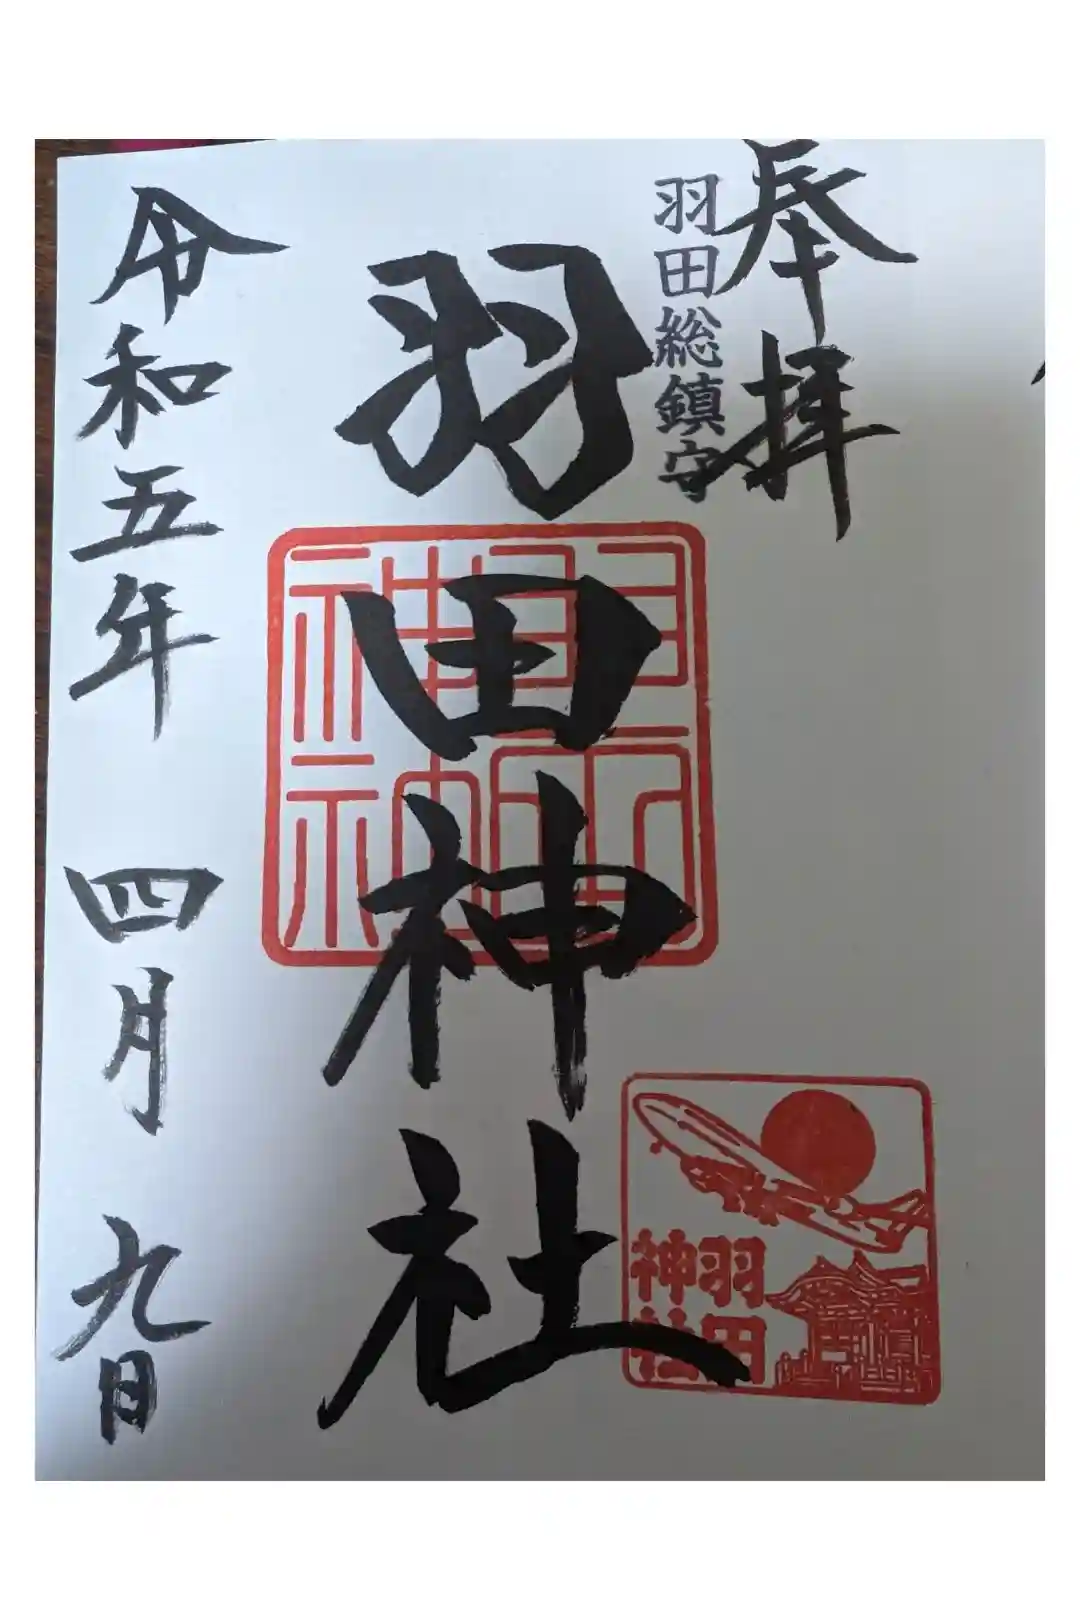 奉拝
羽田総鎮守
羽田神社
羽田
神社
羽田
神社
令和五年 四月 九日